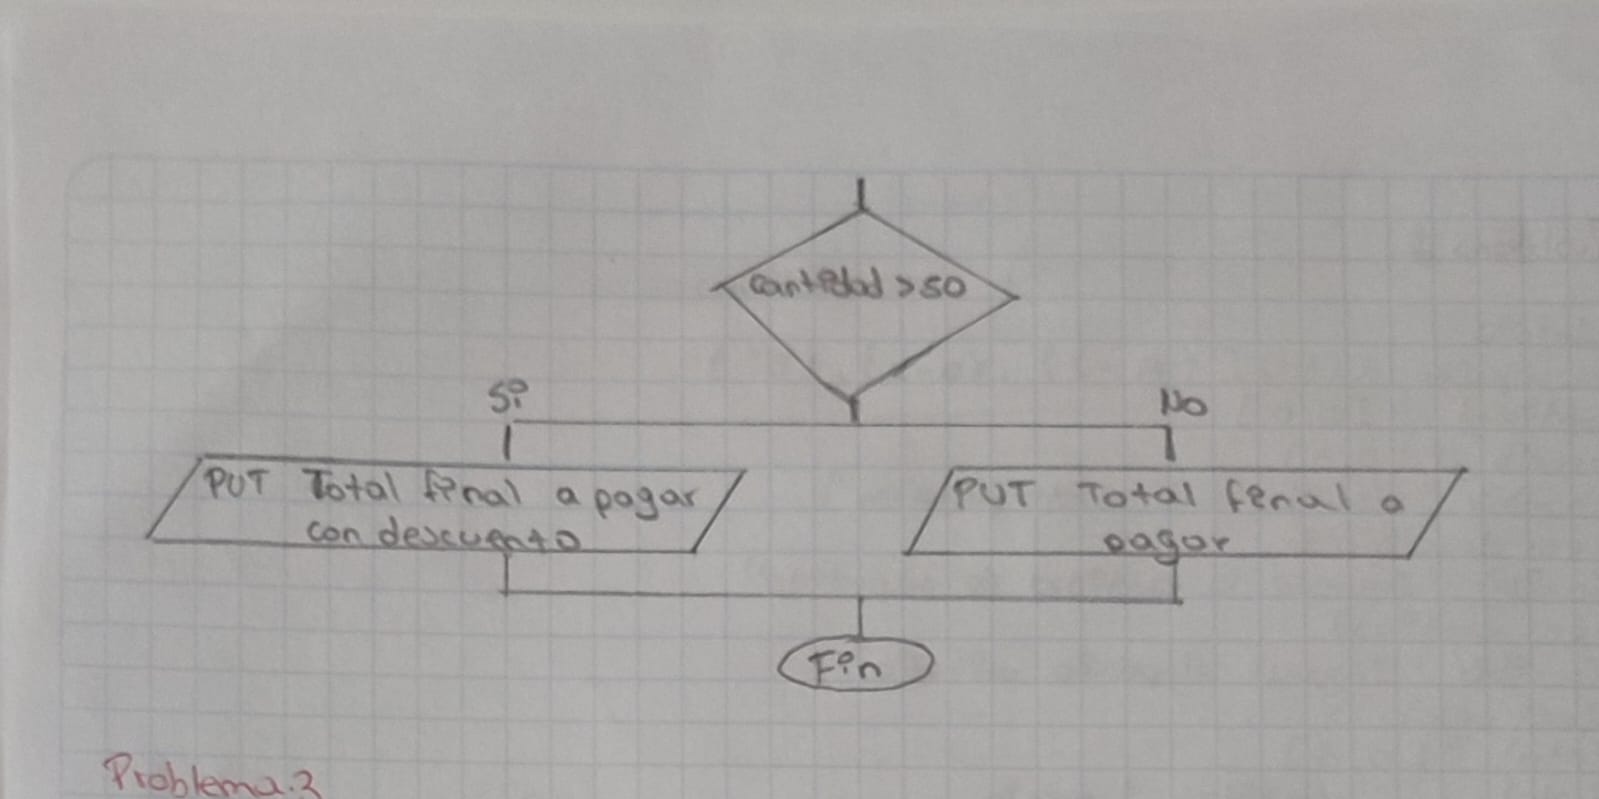 cantidad > 50
Si
No
PUT Total final a pagar
con descuento
PUT Total final a
pagar
Fin
Problema.3